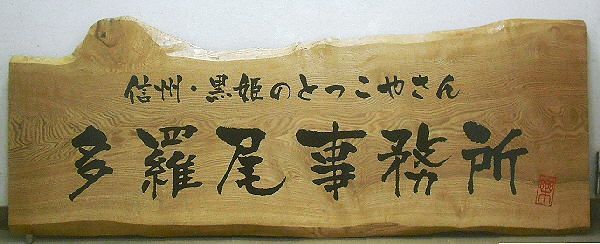 信州・黒姫のとっこやさん
多羅尾事務所